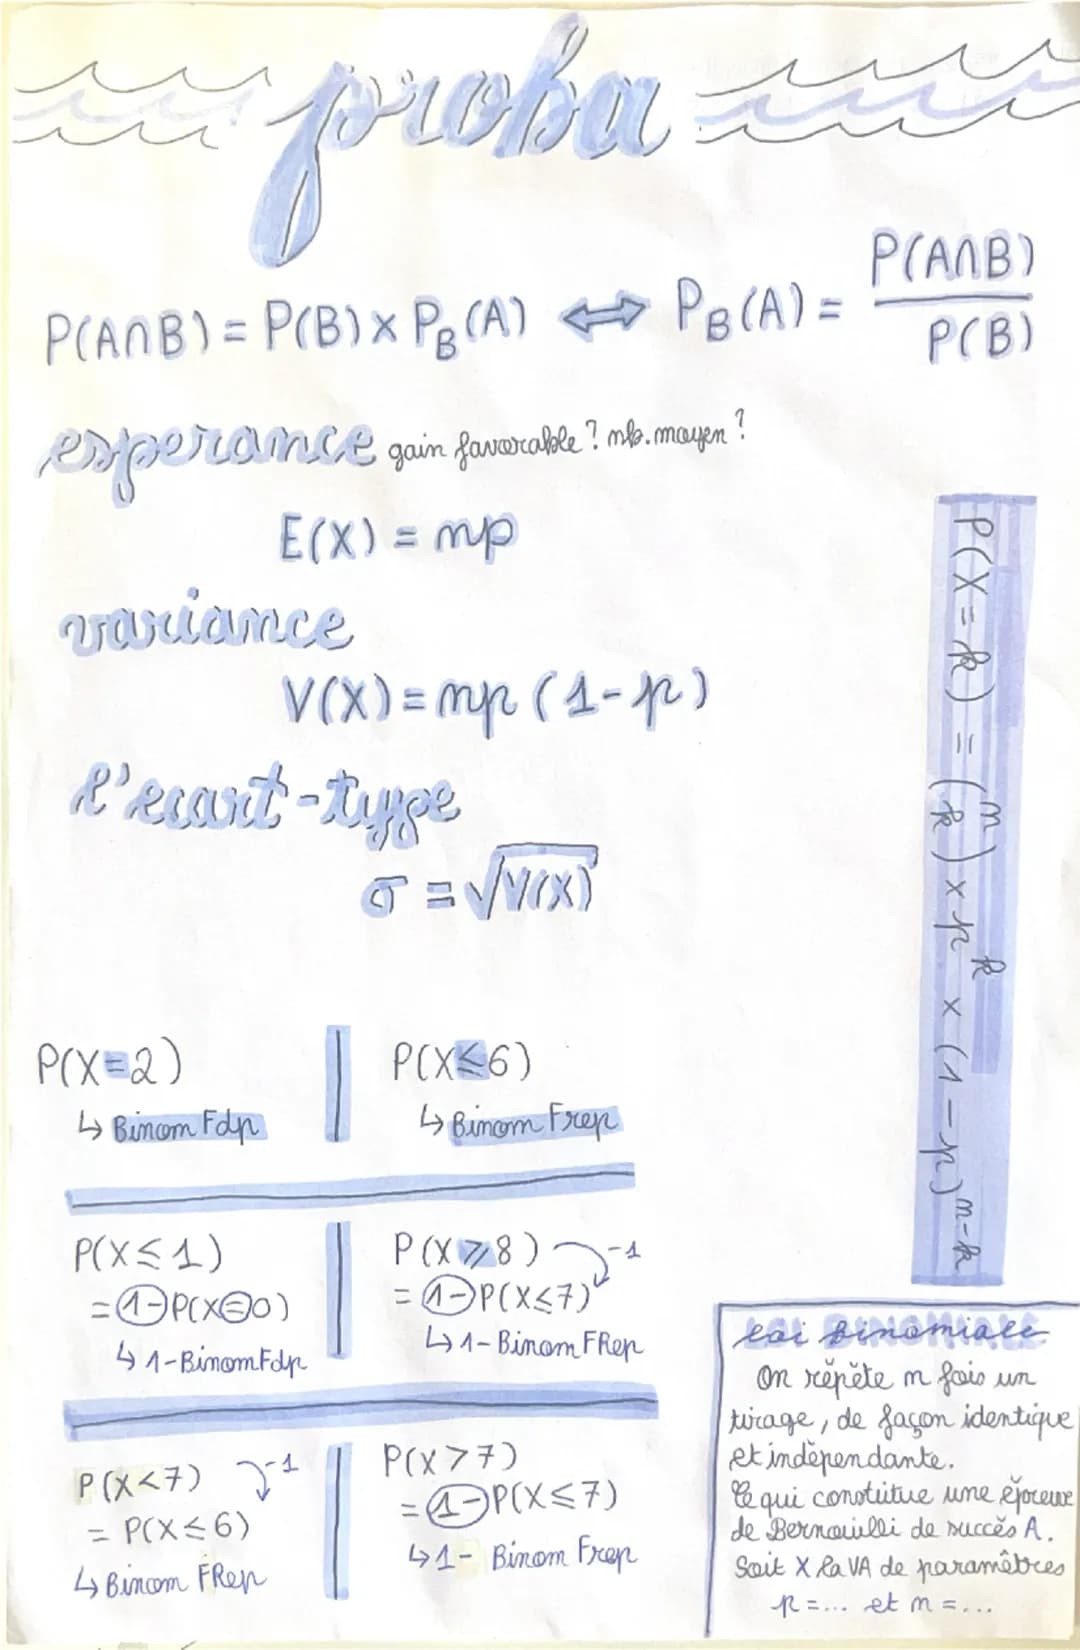 proba
P(A∩B) = P(B) × P_B(A) ⟺ P_B(A) = P(A∩B) / P(B)
esperance gain favorable ? nb. moyen ?
E(X) = np
variance
V(X) = np (1-p)
l'ecart-type
σ = √V(X)
P(X=k) = (n k) × p^k × (1-p)^n-k
P(X=2)
↳ Binom Fdp
P(X≤6)
↳ Binom Frep
P(X≤1)
= 1-P(X=0)
↳ 1-BinomFdp
P(X⩾8) -1
= 1-P(X≤7)
↳ 1-Binom FRep
P(X<7) -1
= P(X≤6)
↳ Binom FRep
P(X>7)
= 1-P(X≤7)
↳ 1- Binom Frep
loi binomiale
On répète n fois un
tirage, de façon identique
et indépendante.
Ce qui constitue une épreuve
de Bernouilli de succès A.
Soit X la VA de paramètres
p=... et n=...